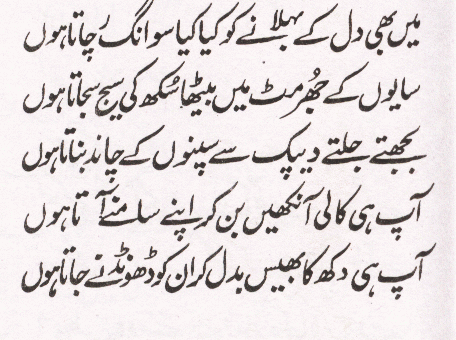 میں بھی دل کے بہلانے کو کیا کیا سوانگ رچاتا ہوں
سایوں کے جھُرمٹ میں بیٹھا سُکھ کی سیج سجاتا ہوں
بجھتے جلتے دیپک سے سپنوں کے چاند بناتا ہوں
آپ ہی کالی آنکھیں بن کر اپنے سامنے آتا ہوں
آپ ہی دکھ کا بھیس بدل کر ان کو ڈھونڈنے جاتا ہوں